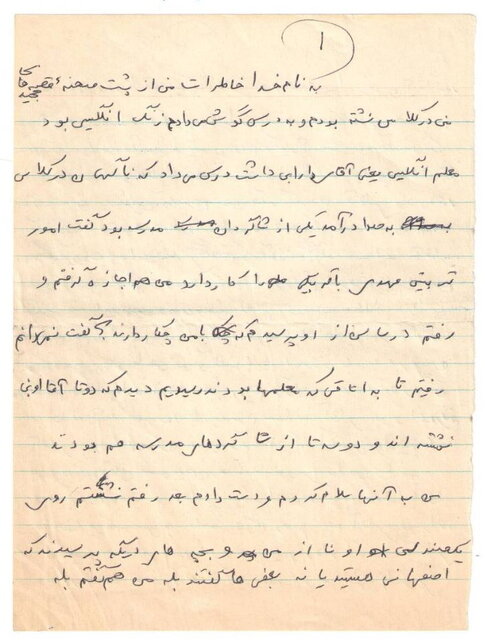 ۱
به نام خدا خاطرات من از پشت صحنهٔ قصه های
مجید
من در کلاس نشسته بودم و به درس گوش می دادم زنگ انگلیسی بود
معلم انگلیسی یعنی آقای دارابی داشت درس می داد که ناگهان در کلاس
به صدا درآمد یکی از شاگردان مدرسه بود گفت امور
تربیتی مهدی باقربیگی را کار دارد من هم اجازه گرفتم و
رفتم در سالن از او پرسیدم که با من چکار دارند گفت نمی دانم
رفتیم تا به اتاقی که معلمها بودند رسیدیم دیدم که دو تا آقا اونجا
نشسته اند و دو سه تا از شاگردهای مدرسه هم بودند
من به آنها سلام کردم و دست دادم بعد رفتم نشستم روی
یک صندلی اونا از من و بچه های دیگه پرسیدند که
اصفهانی هستید یا نه بعضی ها گفتند بله من هم گفتم بله